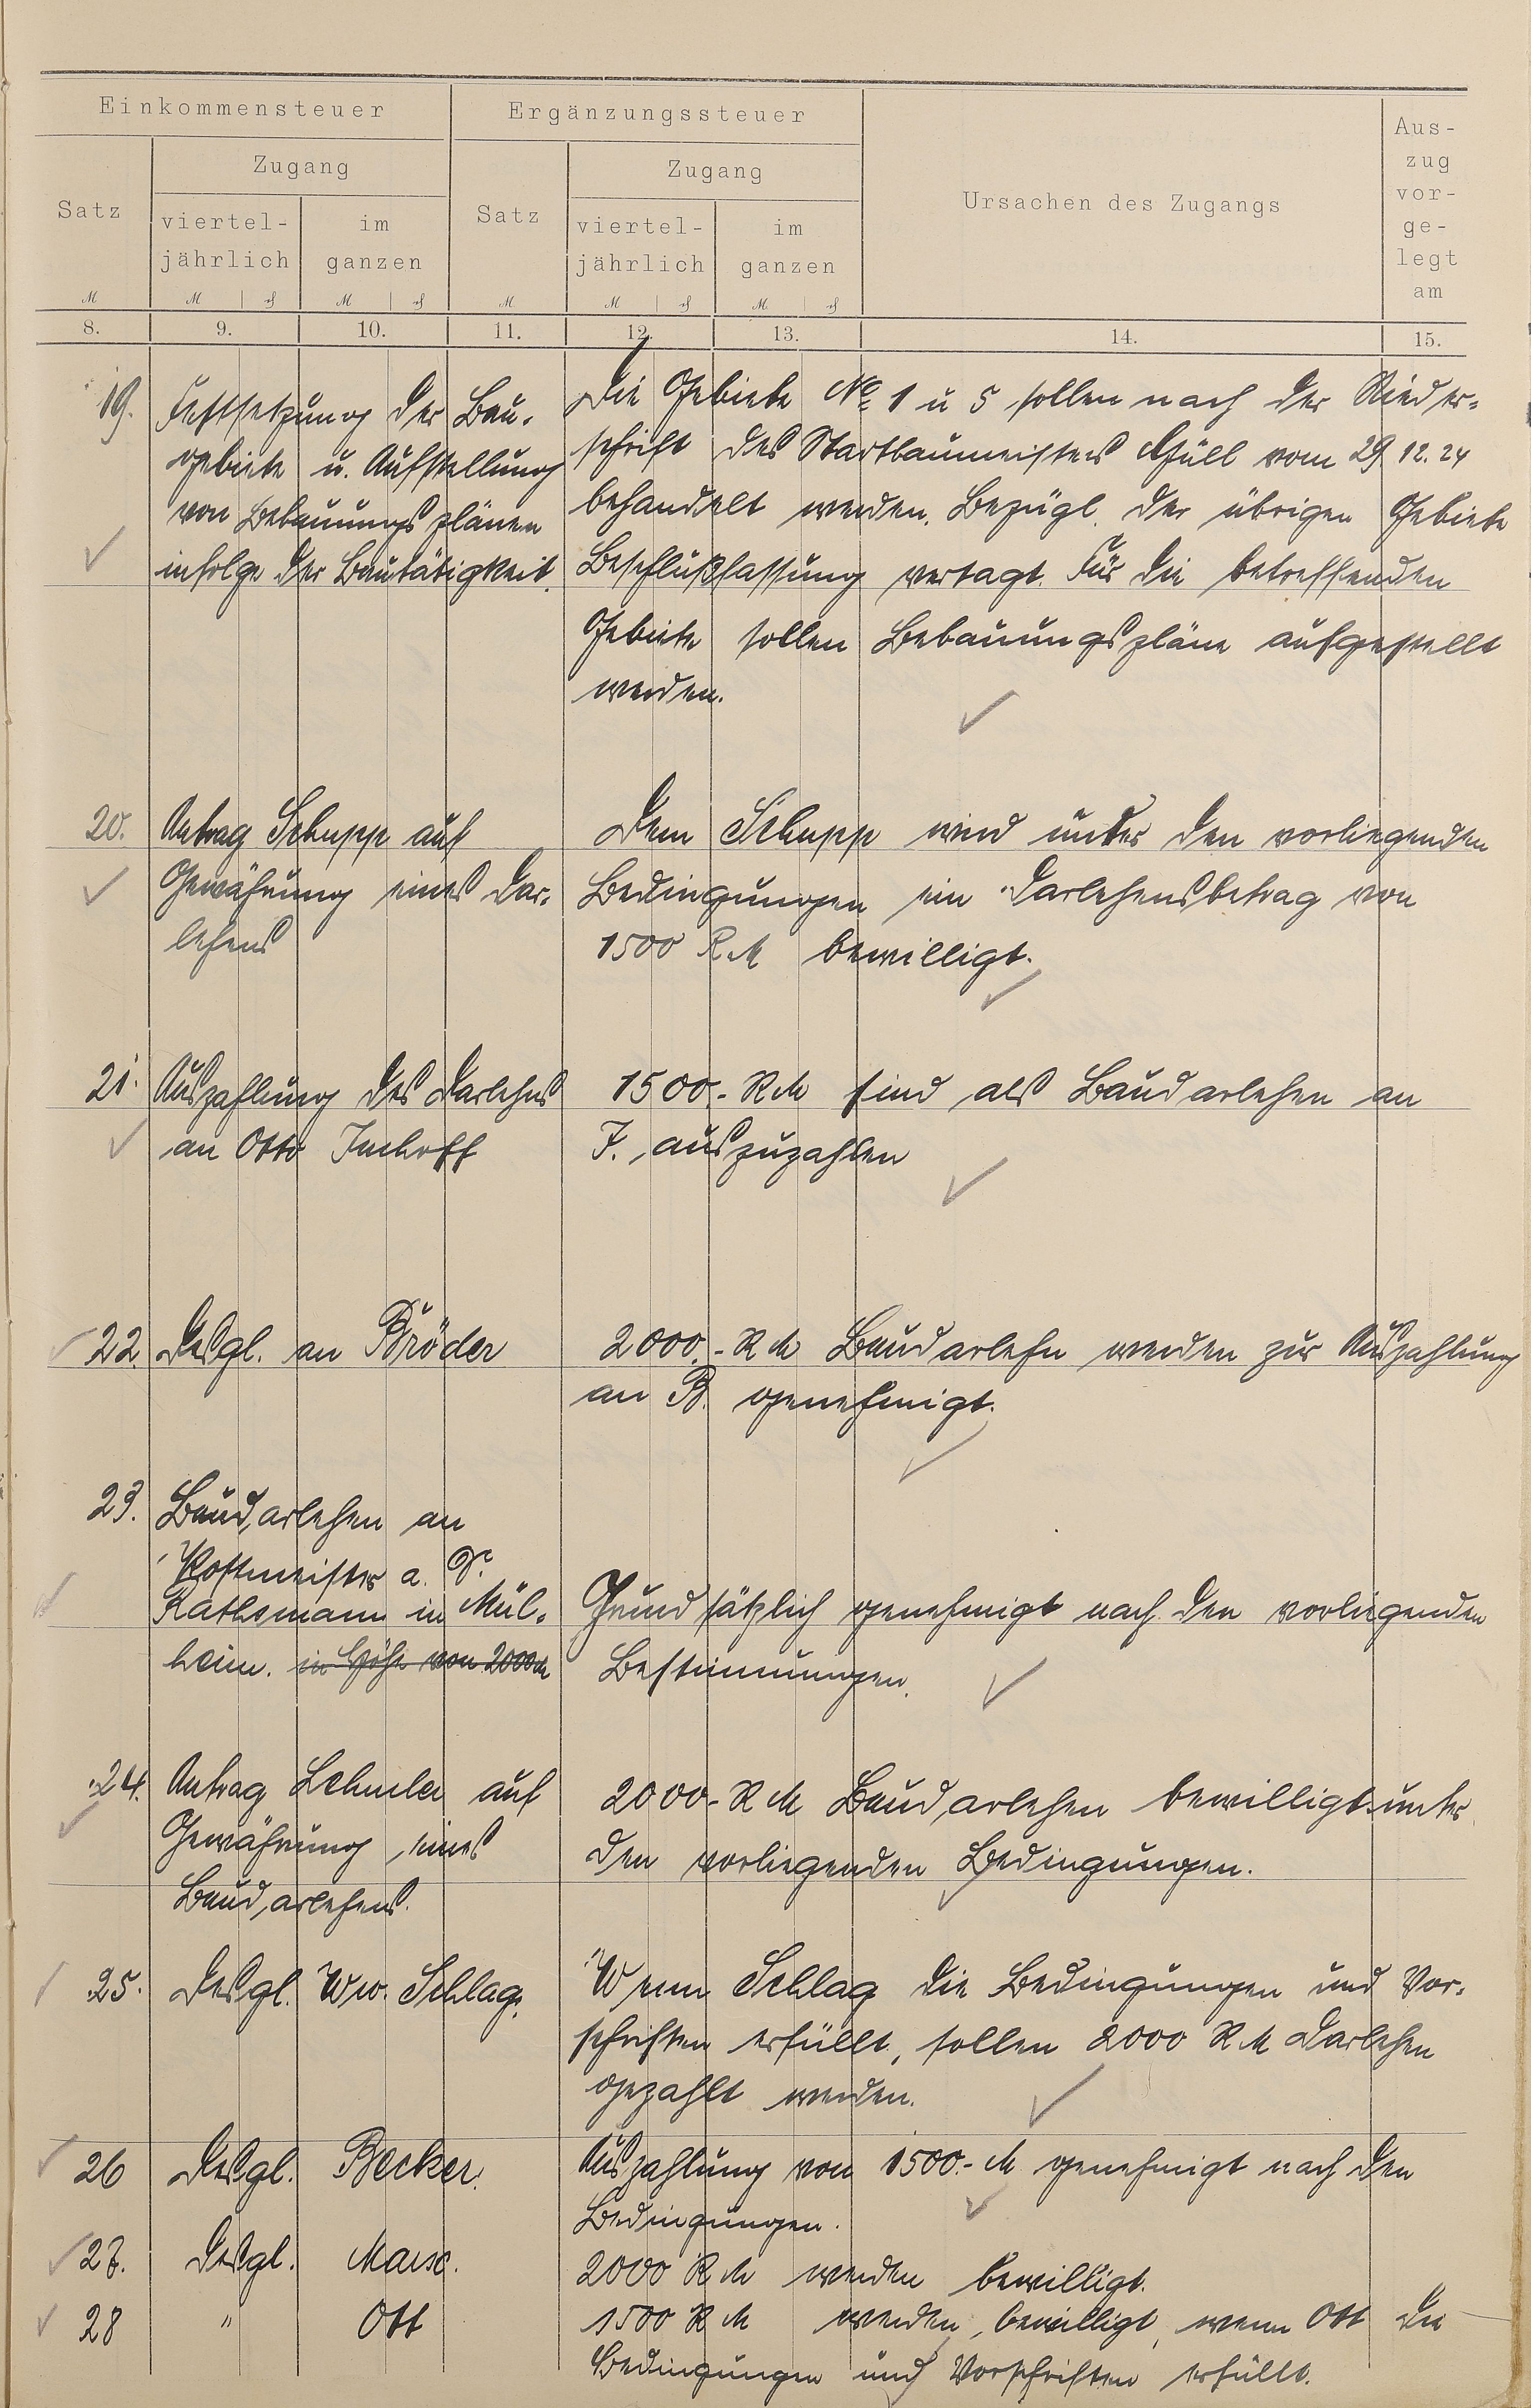 Einkommensteuer
Ergänzungssteuer
Satz
Zugang
viertel-
jährlich
im
ganzen
Satz
Zugang
viertel-
jährlich
im
ganzen
Ursachen des Zugangs
Aus-
zug
vor-
ge-
legt
am
M
M | ₰
M | ₰
M
M | ₰
M | ₰
8. 9. 10. 11. 12. 13. 14. 15.
19. Festsetzung der Bau-
gebiete u. Aufstellung
von Bebauungsplänen
infolge der Bautätigkeit.
Die Gebiete No. 1 u 5 sollen nach der Nieder-
schrift des Stadtbaumeisters Güll vom 29.12.24
behandelt werden. Bezügl. der übrigen Gebiete
Beschlußfassung vertagt. Für die betreffenden
Gebiete sollen Bebauungspläne aufgestellt
werden.
20. Antrag Schupp auf
Gewährung eines Dar-
lehens
Dem Schupp wird unter den vorliegenden
Bedingungen ein Darlehensbetrag von
1500 RM bewilligt.
21. Auszahlung des Darlehns
an Otto Imhoff
1500.- RM sind als Baudarlehen an
J. auszuzahlen
22. Desgl. an Bröder
2000.- RM Baudarlehn werden zur Auszahlung
an B. genehmigt.
23. Baudarlehen an
Postmeister a. D.
Rathsmann in Mül-
heim. in Höhe von 2000 M
Grundsätzlich genehmigt nach den vorliegenden
Bestimmungen.
24. Antrag Lehmler auf
Gewährung eines
Baudarlehens.
2000.- RM Baudarlehen bewilligt unter
den vorliegenden Bedingungen.
25. Desgl. Ww. Schlag.
Wenn Schlag die Bedingungen und Vor-
schriften erfüllt, sollen 2000 RM Darlehen
gezahlt werden.
26 Desgl. Becker.
Auszahlung von 1500.- M genehmigt nach den
Bedingungen.
27. Desgl. Marx.
2000 RM werden bewilligt.
28 " Ott
1500 RM werden bewilligt, wenn Ott die
Bedingungen und Vorschriften erfüllt.